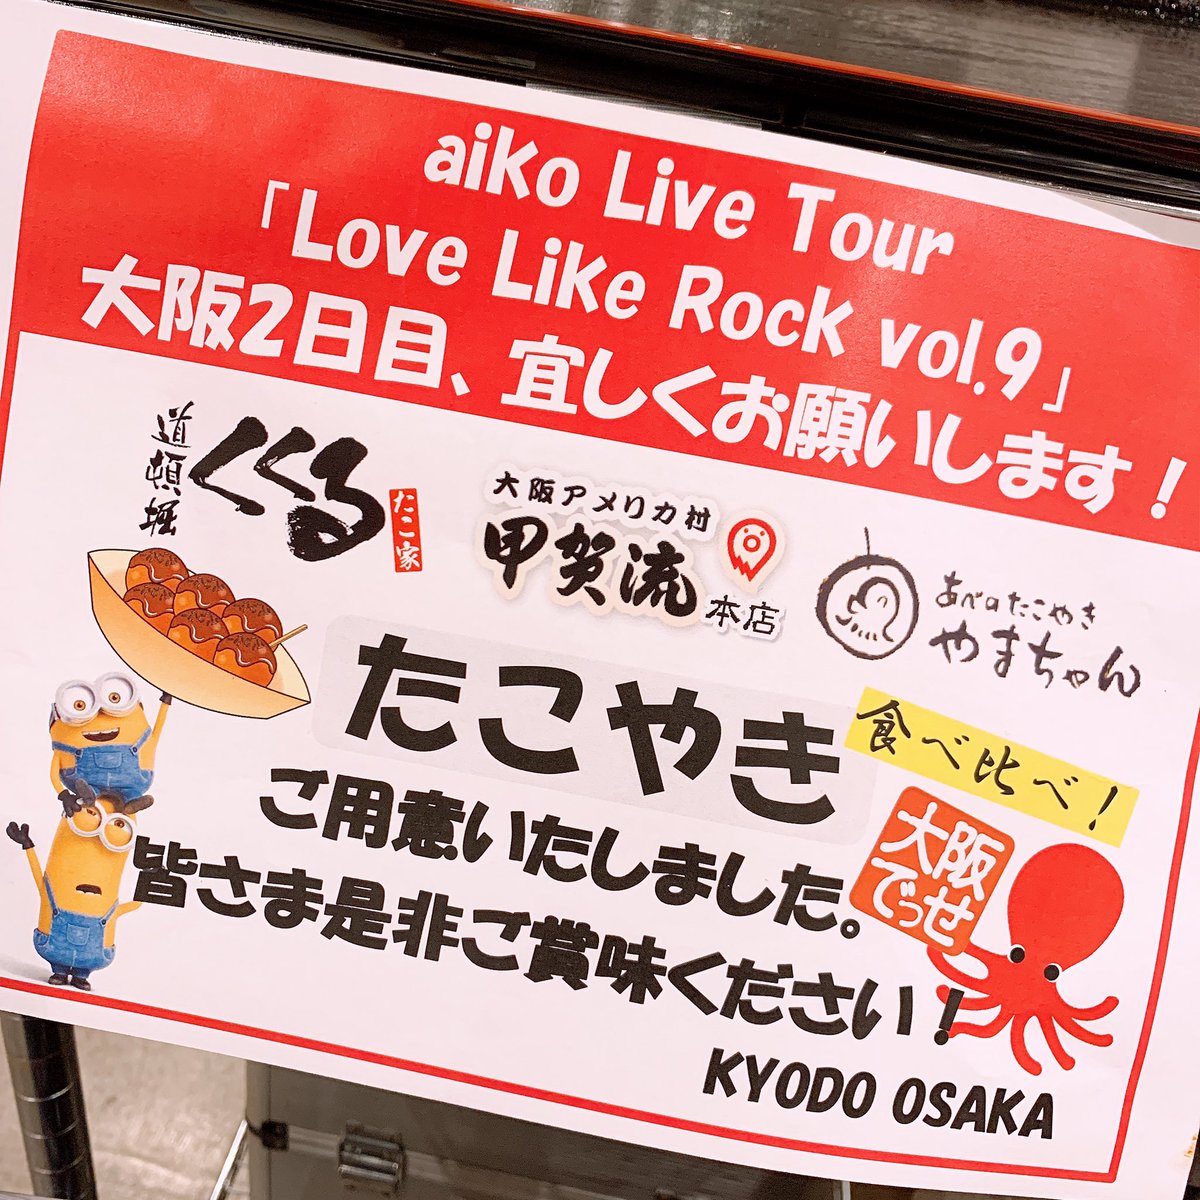 aiko Live Tour
「Love Like Rock vol.9」
大阪2日目、宜しくお願いします！
道頓堀
くくる
たこ家
大阪アメリカ村
甲賀流
本店
あべのたこやき
やまちゃん
たこやき
食べ比べ！
ご用意いたしました。
大阪
でっせ
皆さま是非ご賞味ください！
KYODO OSAKA